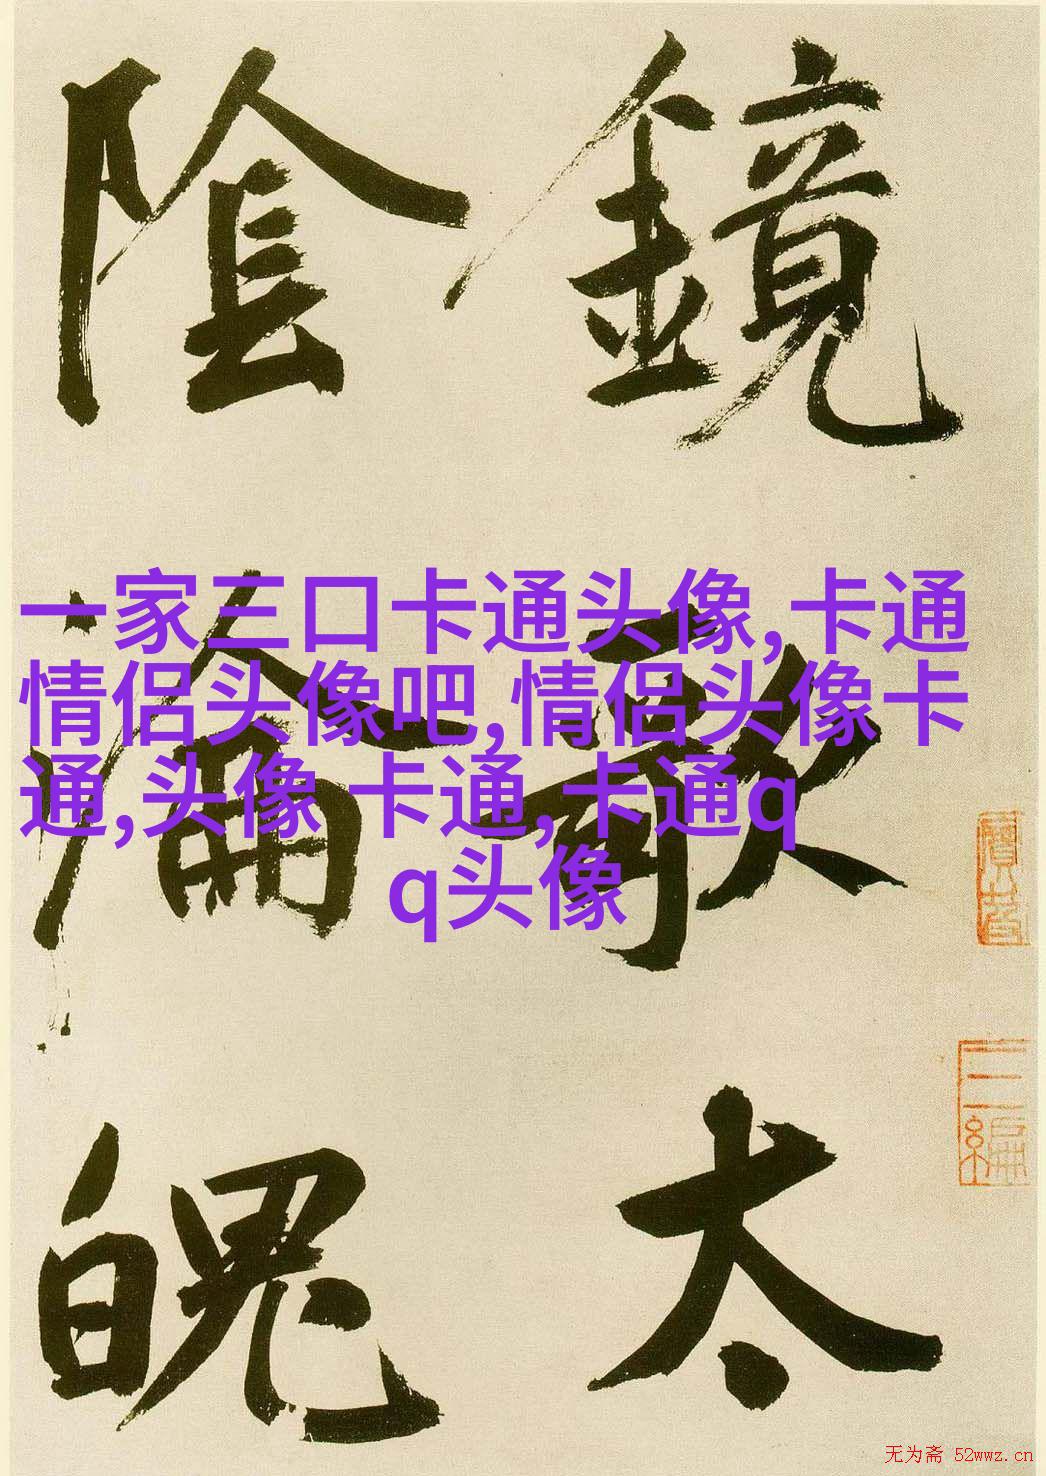 鏡 太
陰淪魄
一家三口卡通头像,卡通
情侣头像吧,情侣头像卡
通,头像 卡通,卡通q
q头像
无为斋 52wwz.cn